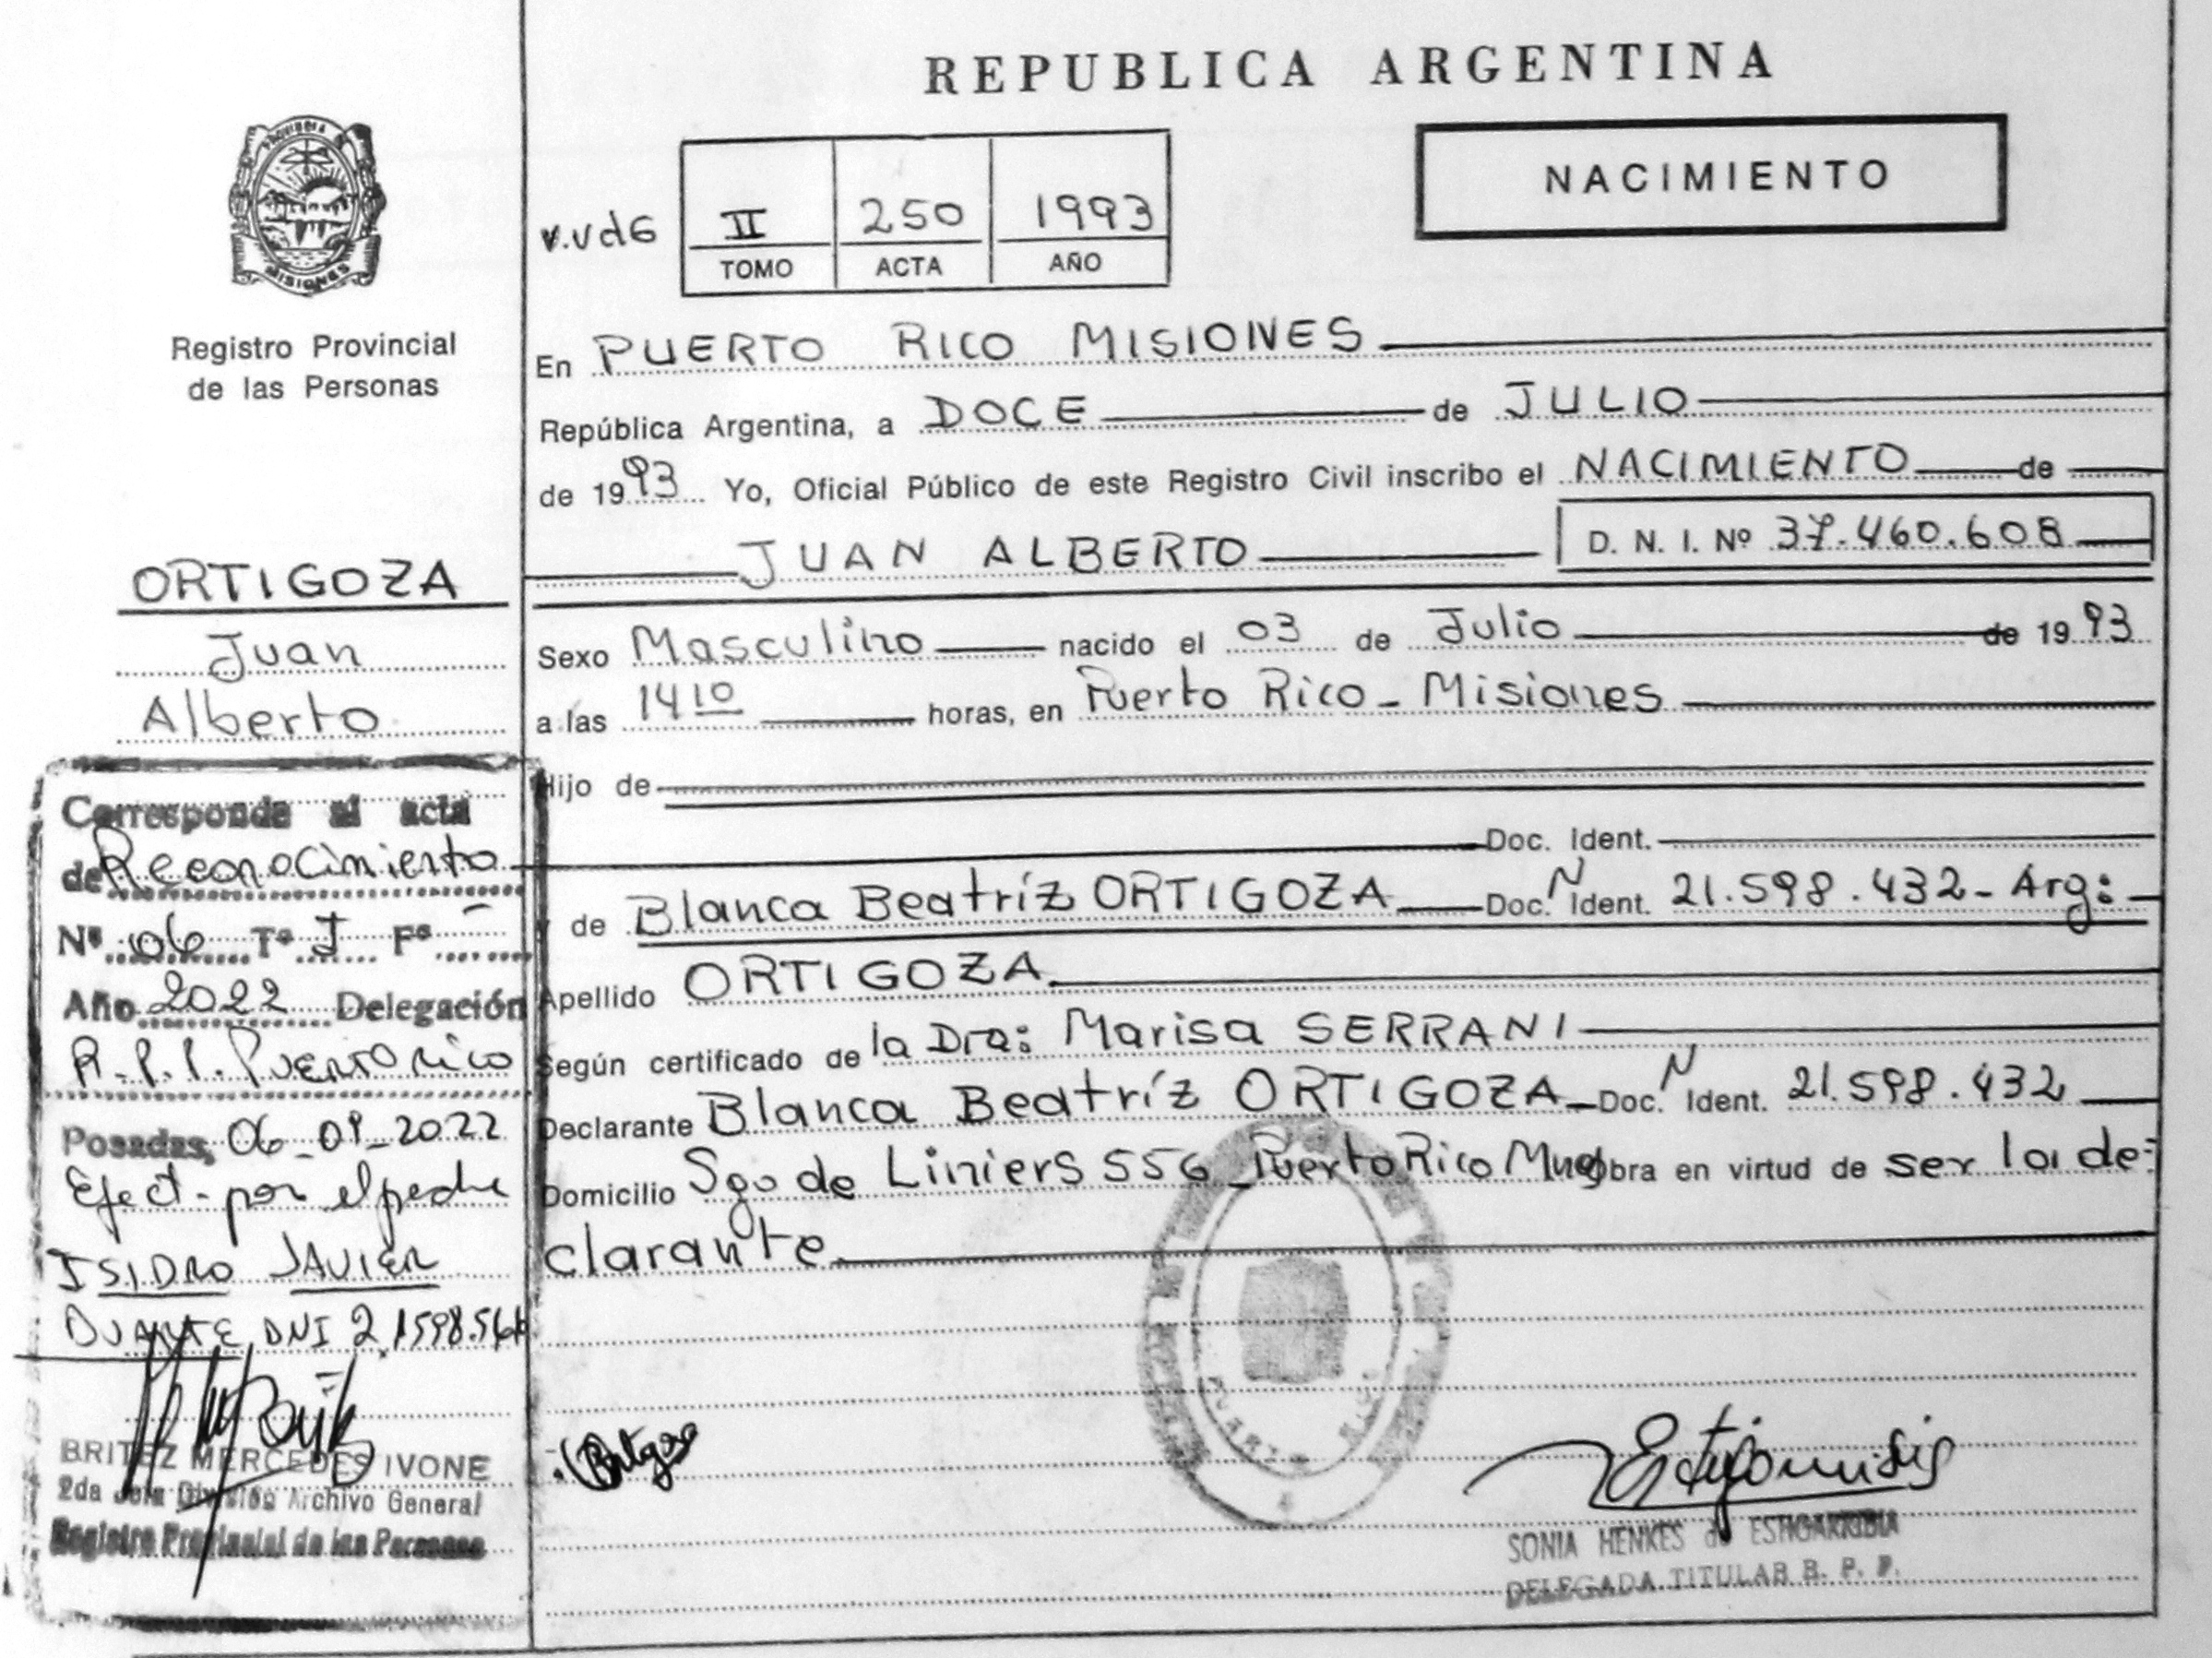 REPUBLICA ARGENTINA
NACIMIENTO
PROVINCIA DE
MISIONES
v.vd6
II 250 1993
TOMO ACTA AÑO
Registro Provincial
de las Personas
En PUERTO RICO MISIONES
República Argentina, a DOCE de JULIO
de 1993 Yo, Oficial Público de este Registro Civil inscribo el NACIMIENTO de
JUAN ALBERTO D. N. I. Nº 37.460.608
ORTIGOZA
Juan
Alberto
Sexo Masculino nacido el 03 de Julio de 1993
a las 14 10 horas, en Puerto Rico - Misiones
Hijo de
Doc. Ident.
y de Blanca Beatríz ORTIGOZA Doc. N Ident. 21.598.432- Arg:
Apellido ORTIGOZA
Según certificado de la Dra: Marisa SERRANI
Declarante Blanca Beatríz ORTIGOZA Doc. N Ident. 21.598.432
Domicilio Sgo de Liniers 556 - Puerto Rico obra en virtud de ser la de-
clarante
Corresponde al acta
de Reconocimiento
Nº 06 Tº I Fº -
Año 2022 Delegación
R.P.P. Puerto Rico
Posadas, 06-09-2022
Efect- por el padre
ISIDRO JAVIER
DUARTE DNI
BRITEZ MERCEDES IVONE
2da Jefa División Archivo General
Registro Provincial de las Personas
PUERTO RICO
SONIA HENKES de ESTIGARRIBIA
DELEGADA TITULAR R. P. P.